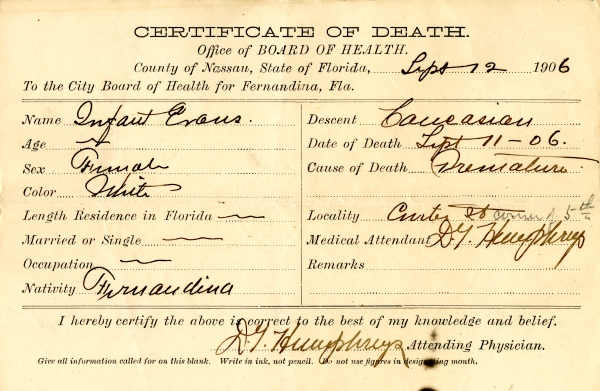 CERTIFICATE OF DEATH.
Office of BOARD OF HEALTH.
County of Nassau, State of Florida, Sept 12 1906
To the City Board of Health for Fernandina, Fla.
Name Infant Evans.
Age
Sex Female
Color White
Length Residence in Florida
Married or Single
Occupation
Nativity Fernandina
Descent Caucasian
Date of Death Sept 11-06.
Cause of Death Premature
Locality St corner of 5th
Medical Attendant D.G. Humphreys
Remarks
I hereby certify the above is correct to the best of my knowledge and belief.
D.G. Humphreys Attending Physician.
Give all information called for on this blank. Write in ink, not pencil. Do not use figures in designating month.